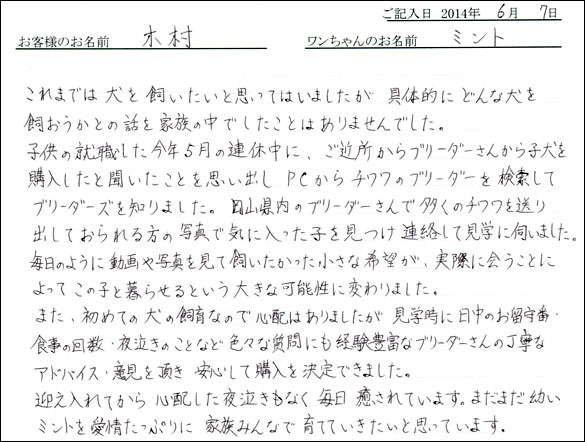 ご記入日 2014年 6月 7日
お客様のお名前 木村 ワンちゃんのお名前 ミント
これまでは犬を飼いたいと思ってはいましたが 具体的にどんな犬を
飼おうかとの話を家族の中でしたことはありませんでした。
子供の就職した今年5月の連休中に、ご近所からブリーダーさんから子犬を
購入したと聞いたことを思い出し PCからチワワのブリーダーを検索して
ブリーダーズを知りました。 山県内のブリーダーさんで多くのチワワを送り
出しておられる方の写真で気に入った子を見つけ連絡して見学に伺いました。
毎日のように動画や写真を見て飼いたかった小さな希望が、実際に会うことに
よってこの子と暮らせるという大きな可能性に変わりました。
また、初めての犬の飼育なので心配はありましたが見学時に日中のお留守番・
食事の回数・夜泣きのことなど色々な質問にも経験豊富なブリーダーさんの丁寧な
アドバイス・意見を頂き 安心して購入を決定できました。
迎え入れてから心配した夜泣きもなく毎日癒されています。まだまだ幼い
ミントを愛情たっぷりに 家族みんなで育てていきたいと思っています。